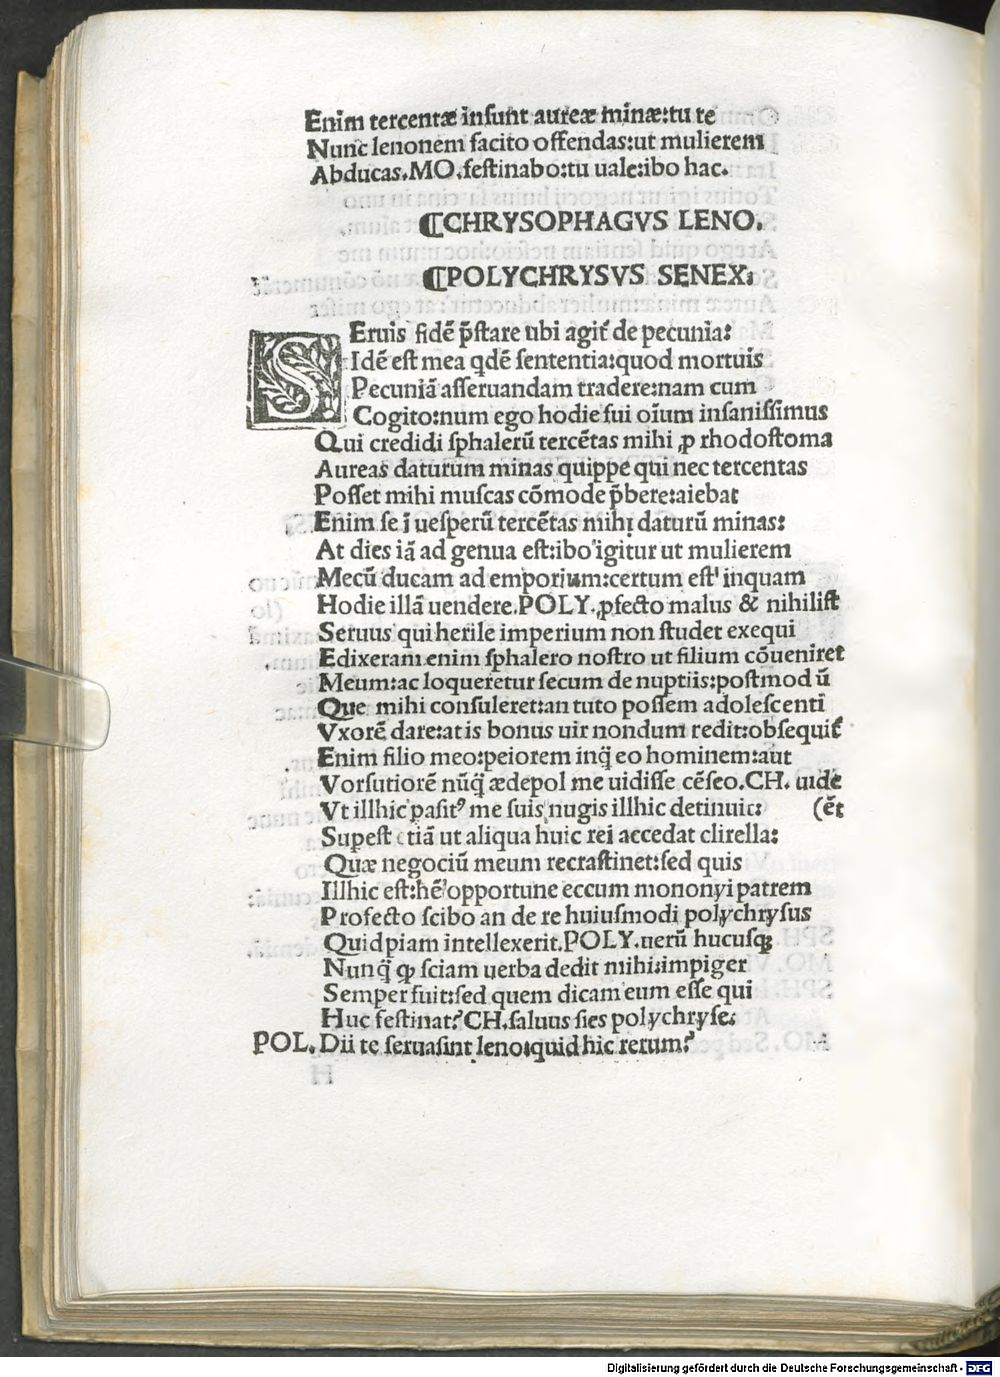 Enim tercentæ insunt aureæ minæ:tu te
Nunc lenonem facito offendas:ut mulierem
Abducas.MO.festinabo:tu uale:ibo hac.
⁋CHRYSOPHAGVS LENO.
⁋POLYCHRYSVS SENEX.
SEruis fidē p̄stare ubi agit᷑ de pecunia:
Idē est mea qdē sententia:quod mortuis
Pecuniā asseruandam tradere:nam cum
Cogito:num ego hodie fui oīum insanissimus
Qui credidi sphalerū tercētas mihi ꝓ rhodostoma
Aureas daturum minas quippe qui nec tercentas
Posset mihi muscas cōmode p̄bere:aiebat
Enim se ī uesperū tercētas mihi daturū minas:
At dies iā ad genua est:ibo igitur ut mulierem
Mecū ducam ad emporium:certum est inquam
Hodie illā uendere.POLY.ꝓfecto malus & nihilist
Seruus qui herile imperium non studet exequi
Edixeram enim sphalero nostro ut filium cōueniret
Meum:ac loqueretur secum de nuptiis:postmodū
Que mihi consuleret:an tuto possem adolescenti
Vxorē dare:at is bonus uir nondum redit:obsequit᷑
Enim filio meo:peiorem inq̄ eo hominem:aut
Vorsutiorē nūq̄ ædepol me uidisse cēseo.CH. uide
Vt illhic pasitꝰ me suis nugis illhic detinuit: (ēt
Superest etiā ut aliqua huic rei accedat clitella:
Quæ negociū meum recrastinet:sed quis
Illhic est:hē opportune eccum mononyi patrem
Profecto scibo an de re huiusmodi polychrysus
Quidpiam intellexerit.POLY.uerū hucusꝗ
Nunq̄ ꝙ sciam uerba dedit mihi:impiger
Semper fuit:sed quem dicam eum esse qui
Huc festinat? CH.saluus sies polychryse:
POL. Dii te seruasint leno:quid hic rerum?
Digitalisierung gefördert durch die Deutsche Forschungsgemeinschaft - DFG